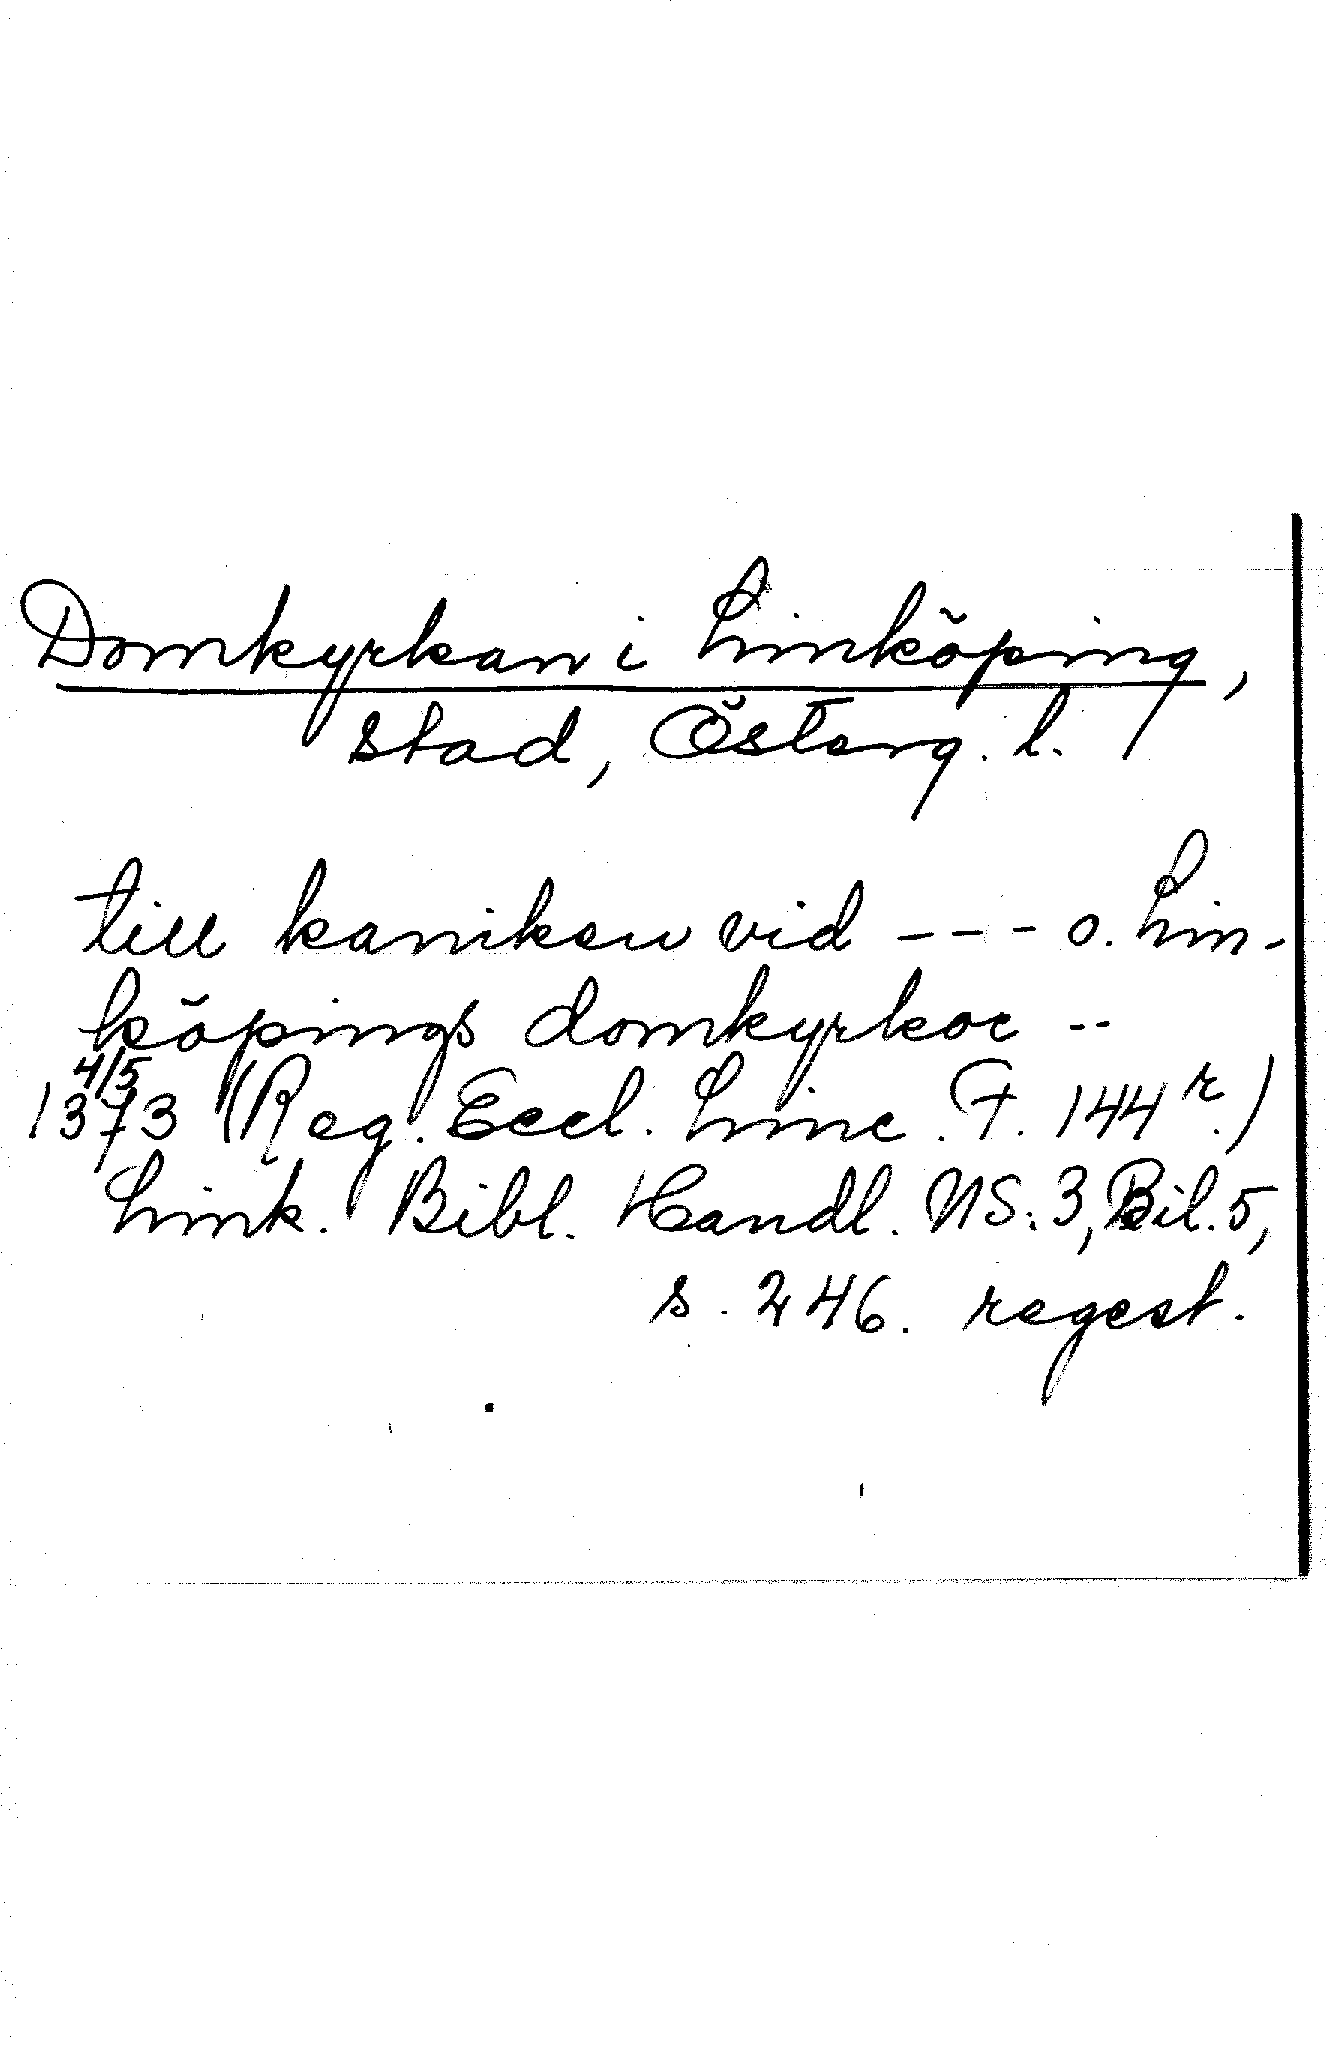 Domkyrkan i Linköping,
stad, Österg. l.
till kaniken vid --- o. Lin-
köpings domkyrkor --
4/5
1373 (Reg. Eccl. Linc. F. 144 r.)
Link. Bibl. Handl. NS: 3, Bil. 5,
s. 246. regest.